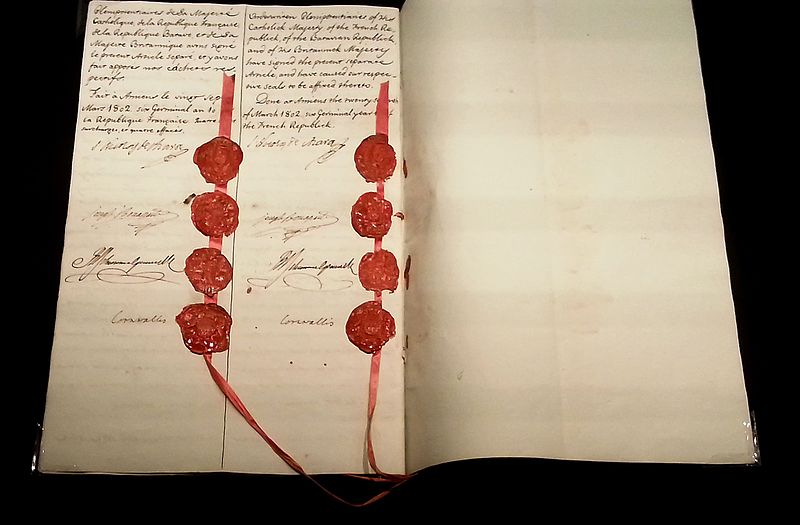 Plenipotentiaires de Sa Majesté
Catholique, de la Republique française
de la Republique Batave et de Sa
Majesté Britannique avons signé
le present Article separé et y avons
fait apposer nos cachets res
pectifs.
Fait à Amiens le vingt sep
Mars 1802. six Germinal an 10
la Republique française
surcharges, et quatre effacés.
Plenipotentiaries of His
Catholick Majesty of the French Re
publick, of the Batavian Republick,
and of His Britannick Majesty
have signed the present separate
Article, and have caused our respec
tive seals to be affixed thereto.
Done at Amiens the twenty
of March 1802. six Germinal year
the French Republick.
Joseph Bonaparte
Joseph Bonaparte
Cornwallis
Cornwallis